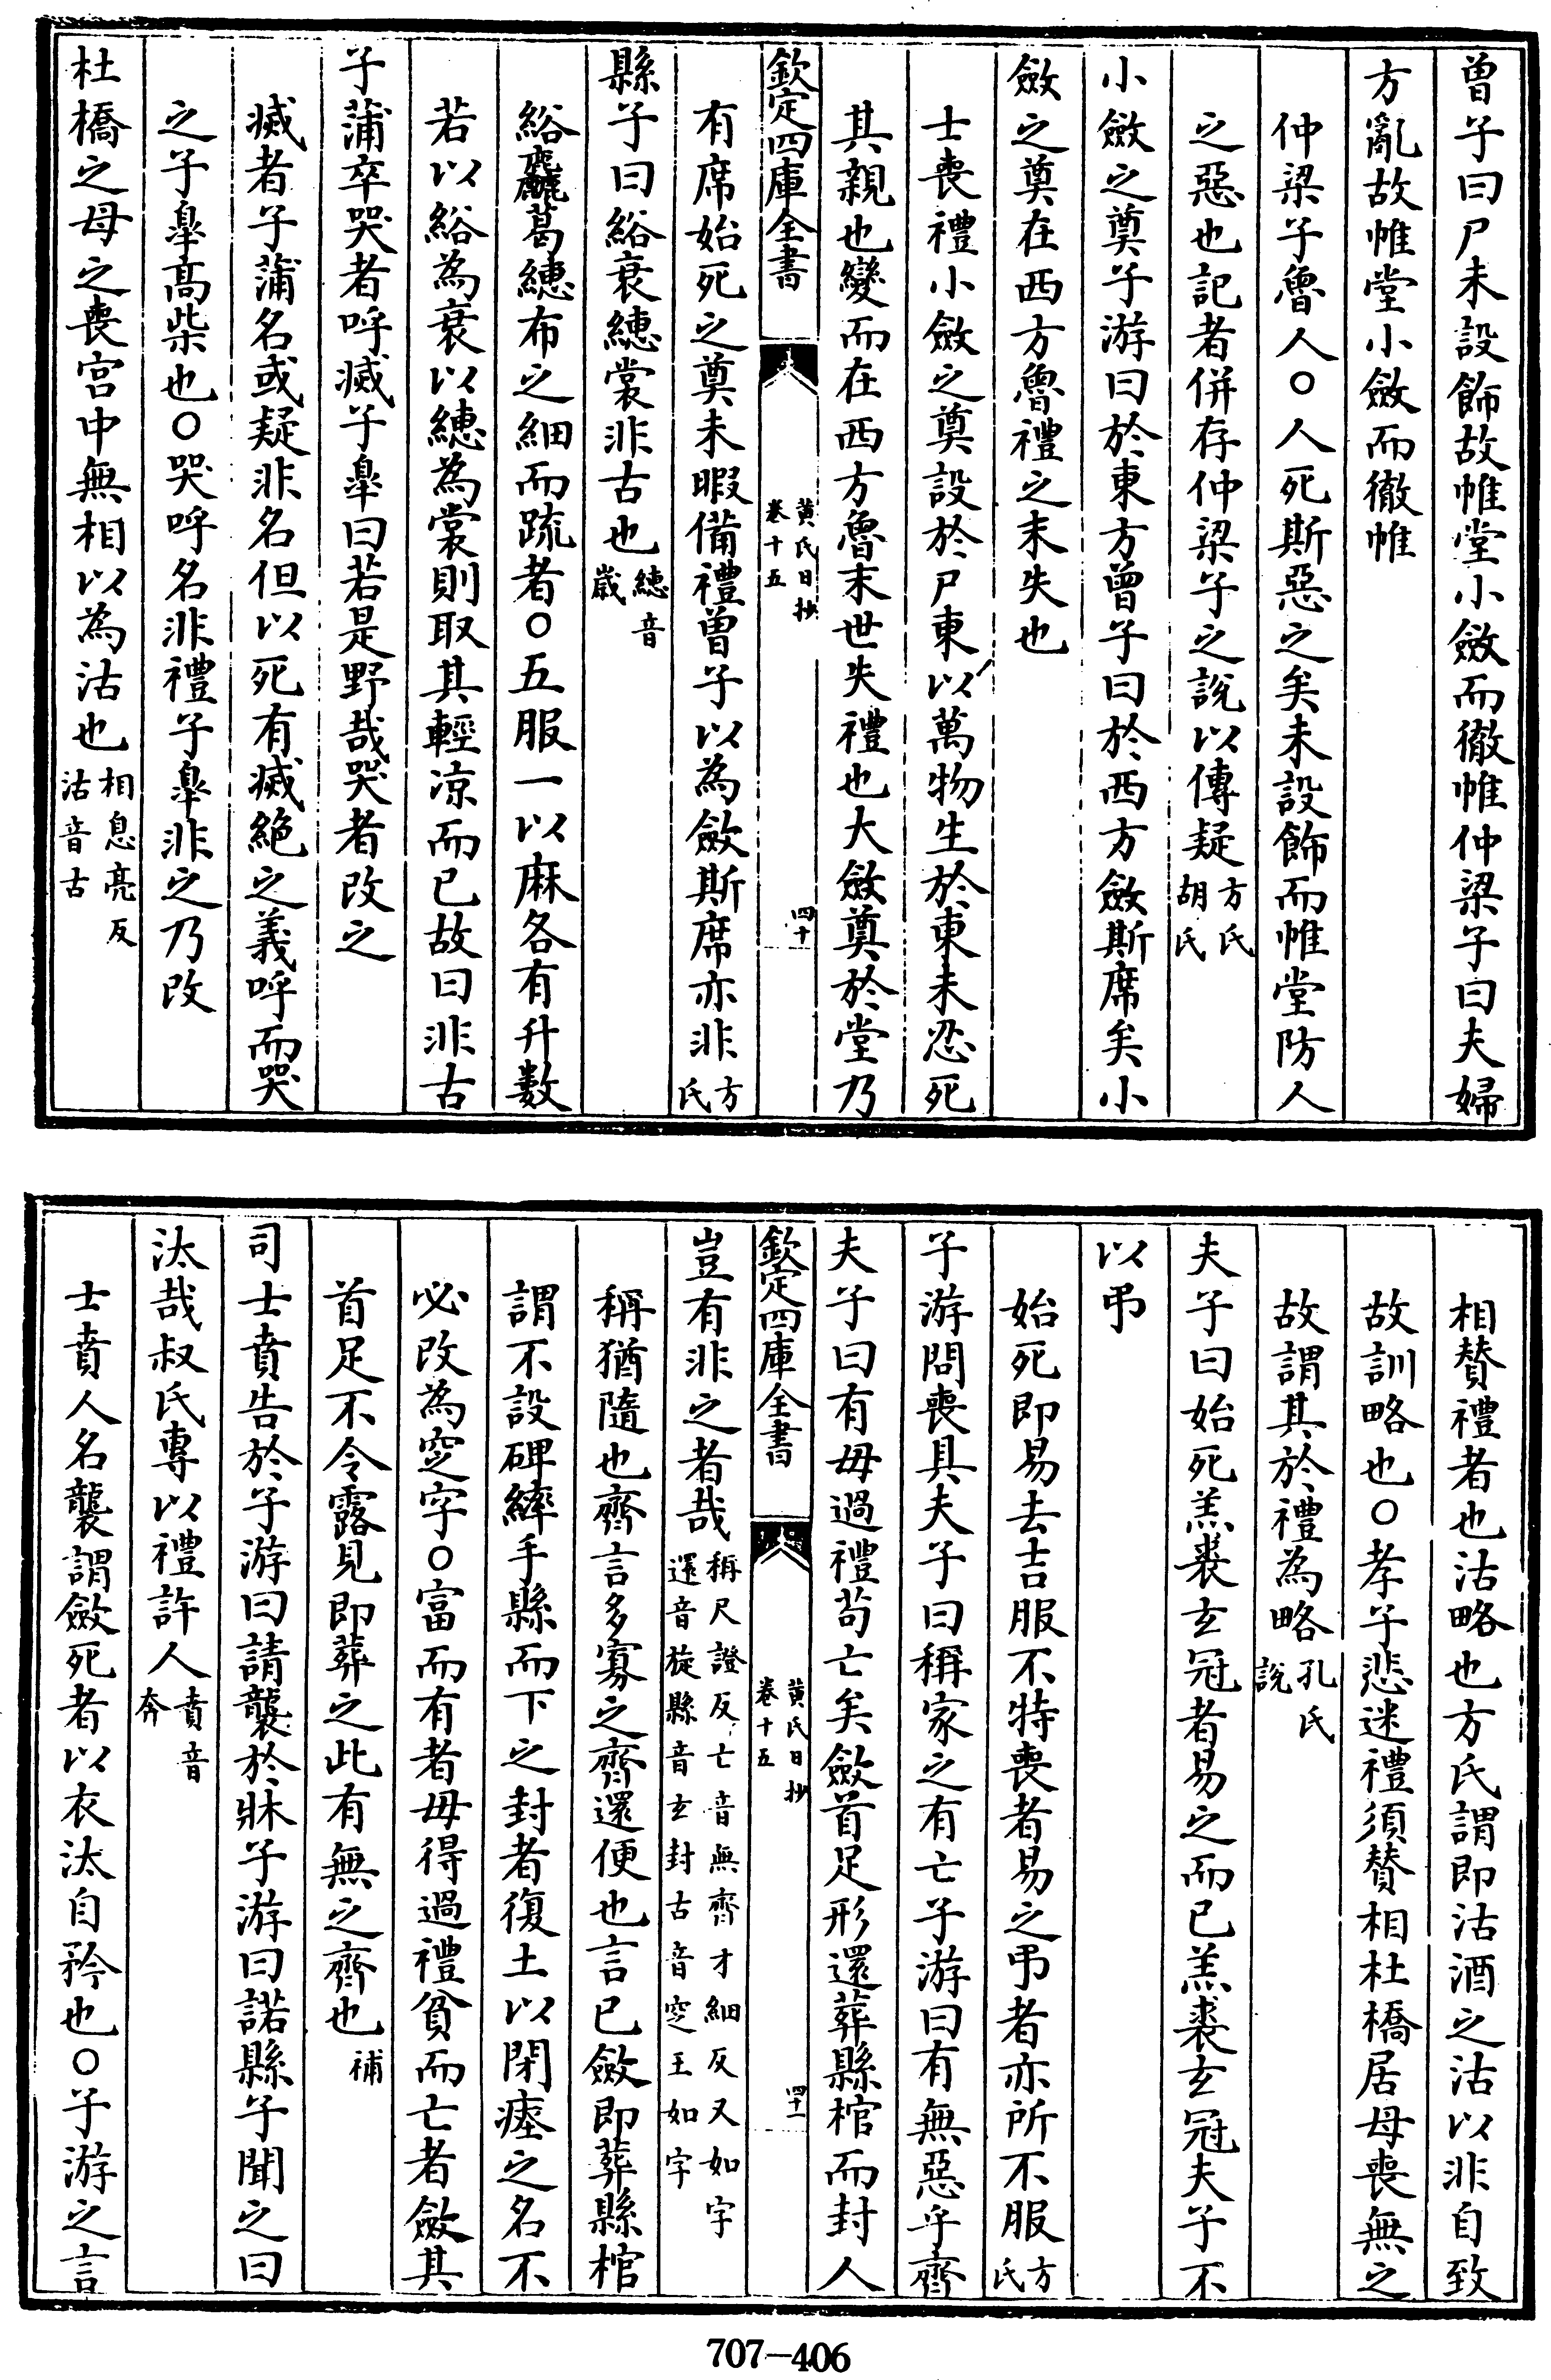 曾子曰尸未設飾故帷堂小斂而徹帷仲梁子曰夫婦
方亂故帷堂小斂而徹帷
仲梁子魯人○人死斯惡之矣未設飾而帷堂防人
之惡也記者併存仲梁子之説以傳疑方氏胡氏
小斂之奠子游曰於東方曾子曰於西方斂斯席矣小
斂之奠在西方魯禮之末失也
士喪禮小斂之奠設於尸東以萬物生於東未忍死
其親也變而在西方魯末世失禮也大斂奠於堂乃
欽定四庫全書
黃氏日抄
卷十五
四十
有席始死之奠未暇備禮曾子以為斂斯席亦非方氏
縣子曰綌衰繐裳非古也繐音歲
綌麤葛繐布之細而疏者○五服一以麻各有升數
若以綌為衰以繐為裳則取其輕涼而已故曰非古
子蒲卒哭者呼滅子臯曰若是野哉哭者改之
滅者子蒲名或疑非名但以死有滅絶之義呼而哭
之子臯高柴也○哭呼名非禮子臯非之乃改
杜橋之母之喪宮中無相以為沽也相息亮反沽音古
相賛禮者也沽略也方氏謂即沽酒之沽以非自致
故訓略也○孝子悲迷禮須賛相杜橋居母喪無之
故謂其於禮為略孔氏説
夫子曰始死羔裘玄冠者易之而已羔裘玄冠夫子不
以弔
始死即易去吉服不特喪者易之弔者亦所不服方氏
子游問喪具夫子曰稱家之有亡子游曰有無惡乎齊
夫子曰有毋過禮苟亡矣斂首足形還葬縣棺而封人
欽定四庫全書
黃氏日抄
卷十五
四十一
豈有非之者哉稱尺證反亡音無齊才細反又如字還音旋縣音玄封古音窆王如字
稱猶隨也齊言多寡之齊還便也言已斂即葬縣棺
謂不設碑繂手縣而下之封者復土以閉瘞之名不
必改為窆字○富而有者毋得過禮貧而亡者斂其
首足不令露見即葬之此有無之齊也補
司士賁告於子游曰請襲於牀子游曰諾縣子聞之曰
汰哉叔氏專以禮許人賁音奔
士賁人名襲謂斂死者以衣汰自矜也○子游之言
707—406